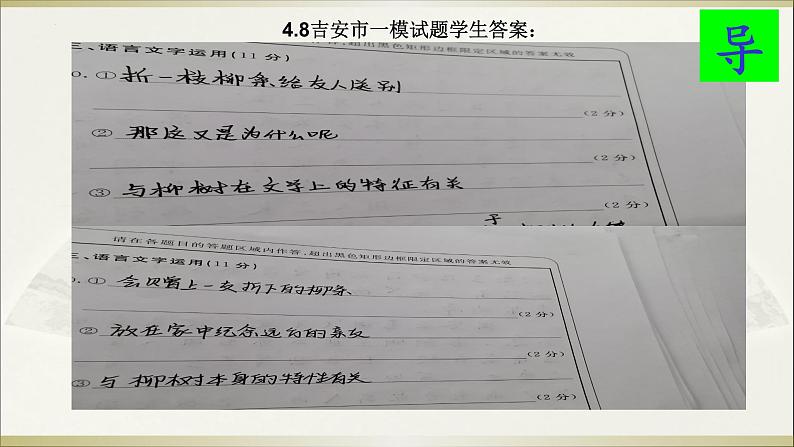 4.8吉安市一模试题学生答案：
导
三、语言文字运用(11 分)
超出黑色矩形边框限定区域的答案无效
0. ① 折一枝柳条给友人送别
(2 分)
② 那这又是为什么呢
(2 分)
③ 与柳树在文学上的特征有关
(2 分)
请在各题目的答题区域内作答，超出黑色矩形边框限定区域的答案无效
三、语言文字运用(11 分)
0. ① 会赠上一支折下的柳条
(2 分)
② 放在家中纪念远方的亲友
(2 分)
③ 与柳树本身的特性有关
(2 分)